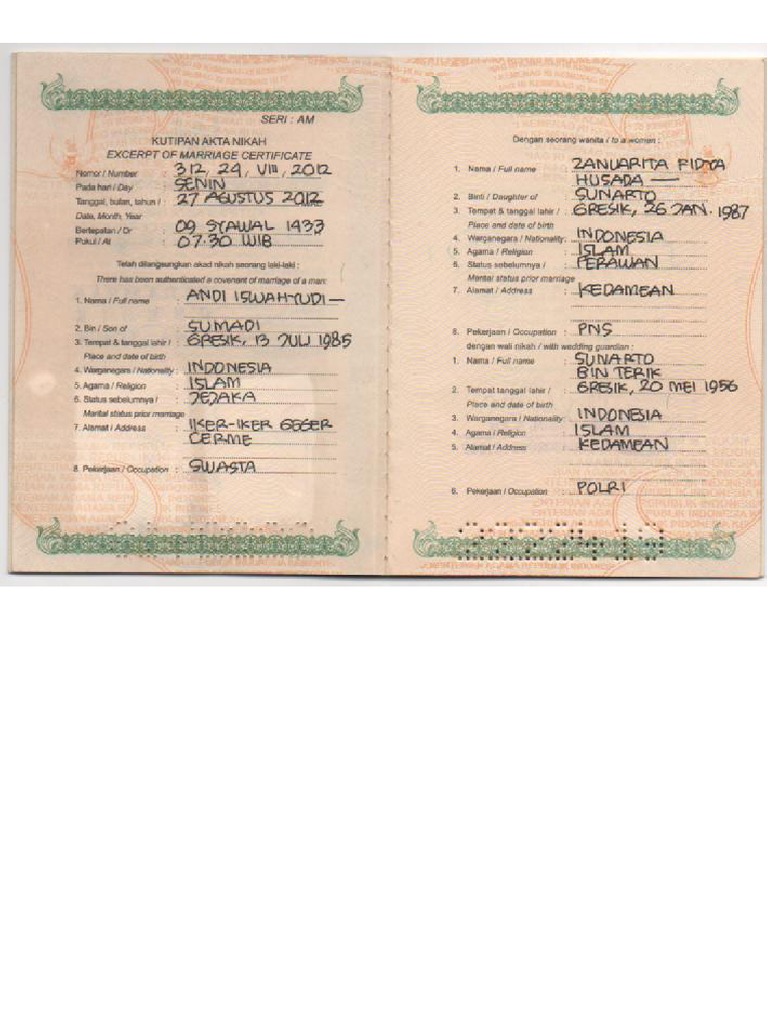 SERI : AM
KUTIPAN AKTA NIKAH
EXCERPT OF MARRIAGE CERTIFICATE
Nomor / Number : 312, 29, VIII, 2012
Pada hari / Day : SENIN
Tanggal, bulan, tahun / : 27 AGUSTUS 2012
Date, Month, Year
Bertepatan / Dr : 09 SYAWAL 1433
Pukul / At : 07.30 WIB
Telah dilangsungkan akad nikah seorang laki-laki :
There has been authenticated a covenant of marriage of a man:
1. Nama / Full name : ANDI ISWAHYUDI —
2. Bin / Son of : SUMADI
3. Tempat & tanggal lahir / : GRESIK, 13 JULI 1985
Place and date of birth
4. Warganegara / Nationality : INDONESIA
5. Agama / Religion : ISLAM
6. Status sebelumnya / : JEJAKA
Marital status prior marriage
7. Alamat / Address : IKER-IKER GEGER
CERME
8. Pekerjaan / Occupation : SWASTA
Dengan seorang wanita / to a woman :
1. Nama / Full name : ZANUARITA FIDYA
HUSADA —
2. Binti / Daughter of : SUNARTO
3. Tempat & tanggal lahir / : GRESIK, 26 JAN. 1987
Place and date of birth
4. Warganegara / Nationality: INDONESIA
5. Agama / Religion : ISLAM
6. Status sebelumnya / : PERAWAN
Marital status prior marriage
7. Alamat / Address : KEDAMEAN
8. Pekerjaan / Occupation : PNS
dengan wali nikah / with wedding guardian :
1. Nama / Full name : SUNARTO
BIN TERIK
2. Tempat tanggal lahir / : GRESIK, 20 MEI 1956
Place and date of birth
3. Warganegara / Nationality : INDONESIA
4. Agama / Religion : ISLAM
5. Alamat / Address : KEDAMEAN
6. Pekerjaan / Occupation : POLRI